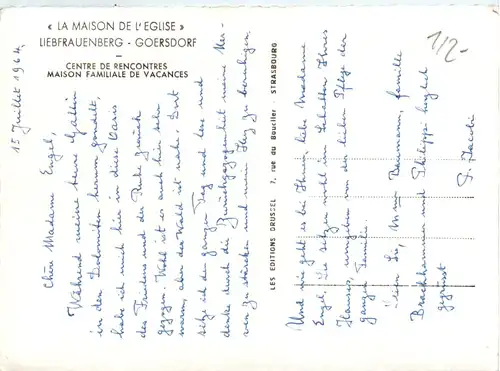 « LA MAISON DE L'EGLISE »
LIEBFRAUENBERG - GOERSDORF
CENTRE DE RENCONTRES
MAISON FAMILIALE DE VACANCES
1/2-
15 Juillet 1964
Chère Madame Engel,
Während meine Gattin
in den Dolomiten herum gondelt,
habe ich mich hier in diese Oasis
des Friedens und der Ruhe zurück
gezogen. Wohl ist es auch hier sehr
warm, aber der Wald ist nahe. Dort
sitze ich den ganzen Tag und lese und
denke durch die Zurückgezogenheit meine Ner-
ven zu stärken und mein Herz zu beruhigen.
LES EDITIONS DRUSSEL - 7, rue du Bouclier - STRASBOURG
Und wie geht es bei Ihnen, liebe Madame
Engel. Sie sitzen wohl im Schatten Ihres
Hauses, umgeben von der lieben Pflege der
ganzen Familie.
Seien Sie, Mme Baumann, famille
und Philippi herzlich
gegrüsst
P. Jacobi